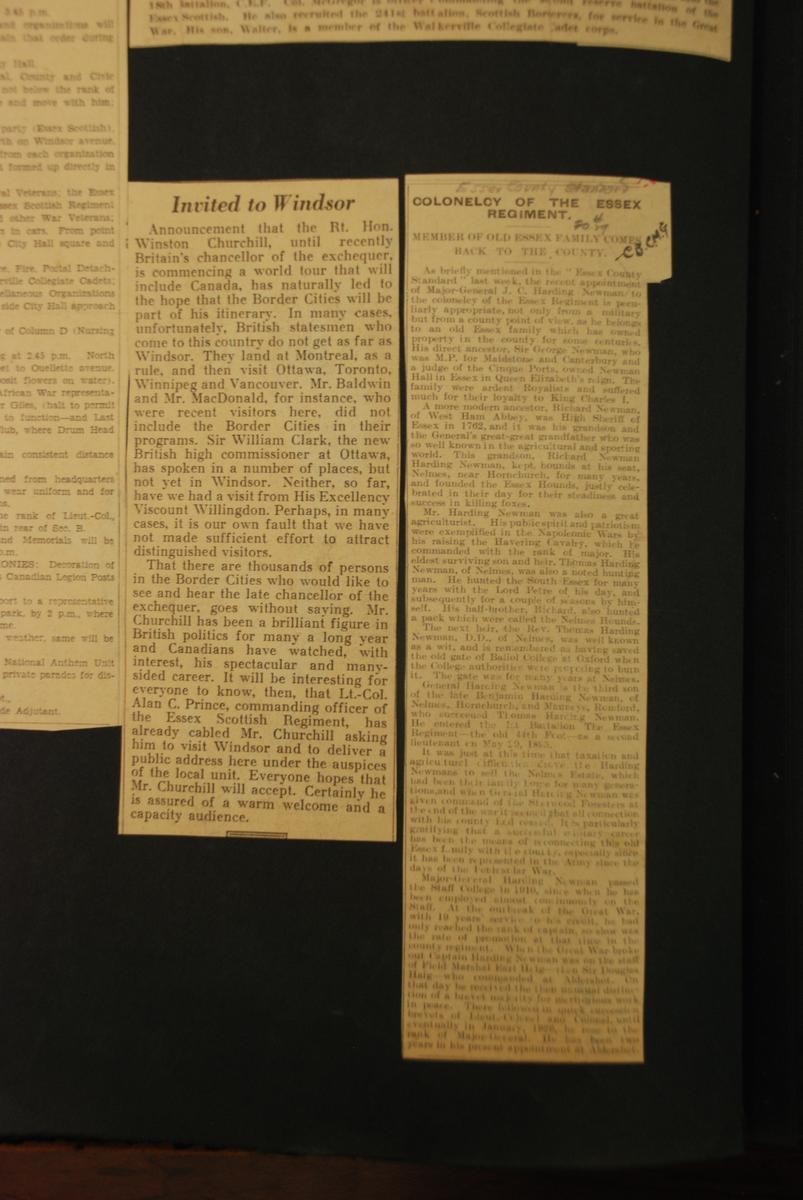 18th battalion, C.E.F. Col. McGregor is
reserve battalion of the
Essex Scottish. He also recruited the 241st battalion, Scottish Borderers, for service in the Great
War. His son, Walter, is a member of the Walkerville Collegiate cadet corps.
2.45 p.m.
and organizations will
that order during
Hall.
County and Civic
not below the rank of
and move with him;
party (Essex Scottish),
on Windsor avenue,
from each organization
formed up directly in
Veterans; the Essex
Scottish Regiment
other War Veterans;
in cars. From point
City Hall square and
Fire, Postal Detach-
Collegiate Cadets;
Organizations
side City Hall approach
of Column D (Nursing
at 2.45 p.m. North
to Ouellette avenue.
flowers on water).
African War representa-
Giles, (halt to permit
to function—and Last
where Drum Head
consistent distance
from headquarters
wear uniform and for
rank of Lieut.-Col.,
in rear of Sec. B.
and Memorials will be
p.m.
Decoration of
Canadian Legion Posts
to a representative
park, by 2 p.m., where
weather, same will be
National Anthem Unit
private parades for dis-
Adjutant.
Invited to Windsor
Announcement that the Rt. Hon.
Winston Churchill, until recently
Britain's chancellor of the exchequer,
is commencing a world tour that will
include Canada, has naturally led to
the hope that the Border Cities will be
part of his itinerary. In many cases,
unfortunately, British statesmen who
come to this country do not get as far as
Windsor. They land at Montreal, as a
rule, and then visit Ottawa, Toronto,
Winnipeg and Vancouver. Mr. Baldwin
and Mr. MacDonald, for instance, who
were recent visitors here, did not
include the Border Cities in their
programs. Sir William Clark, the new
British high commissioner at Ottawa,
has spoken in a number of places, but
not yet in Windsor. Neither, so far,
have we had a visit from His Excellency
Viscount Willingdon. Perhaps, in many
cases, it is our own fault that we have
not made sufficient effort to attract
distinguished visitors.
That there are thousands of persons
in the Border Cities who would like to
see and hear the late chancellor of the
exchequer, goes without saying. Mr.
Churchill has been a brilliant figure in
British politics for many a long year
and Canadians have watched, with
interest, his spectacular and many-
sided career. It will be interesting for
everyone to know, then, that Lt.-Col.
Alan C. Prince, commanding officer of
the Essex Scottish Regiment, has
already cabled Mr. Churchill asking
him to visit Windsor and to deliver a
public address here under the auspices
of the local unit. Everyone hopes that
Mr. Churchill will accept. Certainly he
is assured of a warm welcome and a
capacity audience.
Essex County Standard
COLONELCY OF THE ESSEX
REGIMENT.
MEMBER OF OLD ESSEX FAMILY COMES
BACK TO THE COUNTY.
As briefly mentioned in the "Essex County
Standard" last week, the recent appointment
of Major-General J. C. Harding Newman to
the colonelcy of the Essex Regiment is pecu-
liarly appropriate, not only from a military
but from a county point of view, as he belongs
to an old Essex family which has owned
property in the county for some centuries.
His direct ancestor, Sir George Newman, who
was M.P. for Maidstone and Canterbury and
a judge of the Cinque Ports, owned Newman
Hall in Essex in Queen Elizabeth's reign. The
family were ardent Royalists and suffered
much for their loyalty to King Charles I.
A more modern ancestor, Richard Newman,
of West Ham Abbey, was High Sheriff of
Essex in 1762, and it was his grandson and
the General's great-great grandfather who was
so well known in the agricultural and sporting
world. This grandson, Richard Newman
Harding Newman, kept hounds at his seat,
Nelmes, near Hornchurch, for many years,
and founded the Essex Hounds, justly cele-
brated in their day for their steadiness and
success in killing foxes.
Mr. Harding Newman was also a great
agriculturist. His public spirit and patriotism
were exemplified in the Napoleonic Wars by
his raising the Havering Cavalry, which he
commanded with the rank of major. His
eldest surviving son and heir, Thomas Harding
Newman, of Nelmes, was also a noted hunting
man. He hunted the South Essex for many
years with the Lord Petre of his day, and
subsequently for a couple of seasons by him-
self. His half-brother, Richard, also hunted
a pack which were called the Nelmes Hounds.
The next heir, the Rev. Thomas Harding
Newman, D.D., of Nelmes, was well known
as a wit, and is remembered as having saved
the old gate of Baliol College at Oxford when
the College authorities were proposing to burn
it. The gate was for many years at Nelmes.
General Harding Newman is the third son
of the late Benjamin Harding Newman, of
Nelmes, Hornchurch, and Romford,
who succeeded Thomas Harding Newman.
He entered the 1st Battalion The Essex
Regiment—the old 44th Foot—as a second
lieutenant on May
It was just at this time that taxation and
agricultural difficulties drove the Harding
Newmans to sell the Nelmes Estate, which
had been their family home for many genera-
tions, and when General Harding Newman was
given command of the Sherwood Foresters at
the end of the war it seemed that all connection
with his county had ceased. It is particularly
gratifying that a successful military career
has been the means of reconnecting this old
Essex family with the county, especially since
it has been represented in the Army since the
days of the Peninsular War.
Major-General Harding Newman passed
the Staff College in 1910, since when he has
been employed almost continuously on the
Staff. At the outbreak of the Great War,
with 19 years' service to his credit, he had
only reached the rank of captain, so slow was
the rate of promotion at that time in the
county regiment. When the Great War broke
out Captain Harding Newman was on the staff
of Field Marshal Earl Haig—then Sir Douglas
Haig—who commanded at Aldershot. On
that day he received the then unusual distinc-
tion of a brevet majority for meritorious work
in peace. There followed in quick succession
brevets of Lieut.-Colonel and Colonel, until
eventually in January, he rose to the
rank of Major-General. He has been two
years in his present appointment at Aldershot.